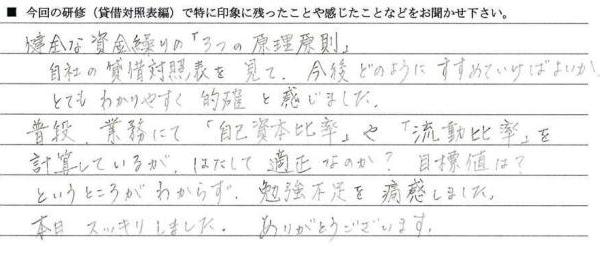 ■ 今回の研修(貸借対照表編)で特に印象に残ったことや感じたことなどをお聞かせ下さい。
健全な資金繰りの「3つの原理原則」
自社の貸借対照表を見て、今後どのようにすすめていけばよいか
とてもわかりやすく的確と感じました。
普段、業務にて「自己資本比率」や「流動比率」を
計算しているが、はたして適正なのか？目標値は？
というところがわからず、勉強不足を痛感しました。
本日スッキリしました。ありがとうございます。